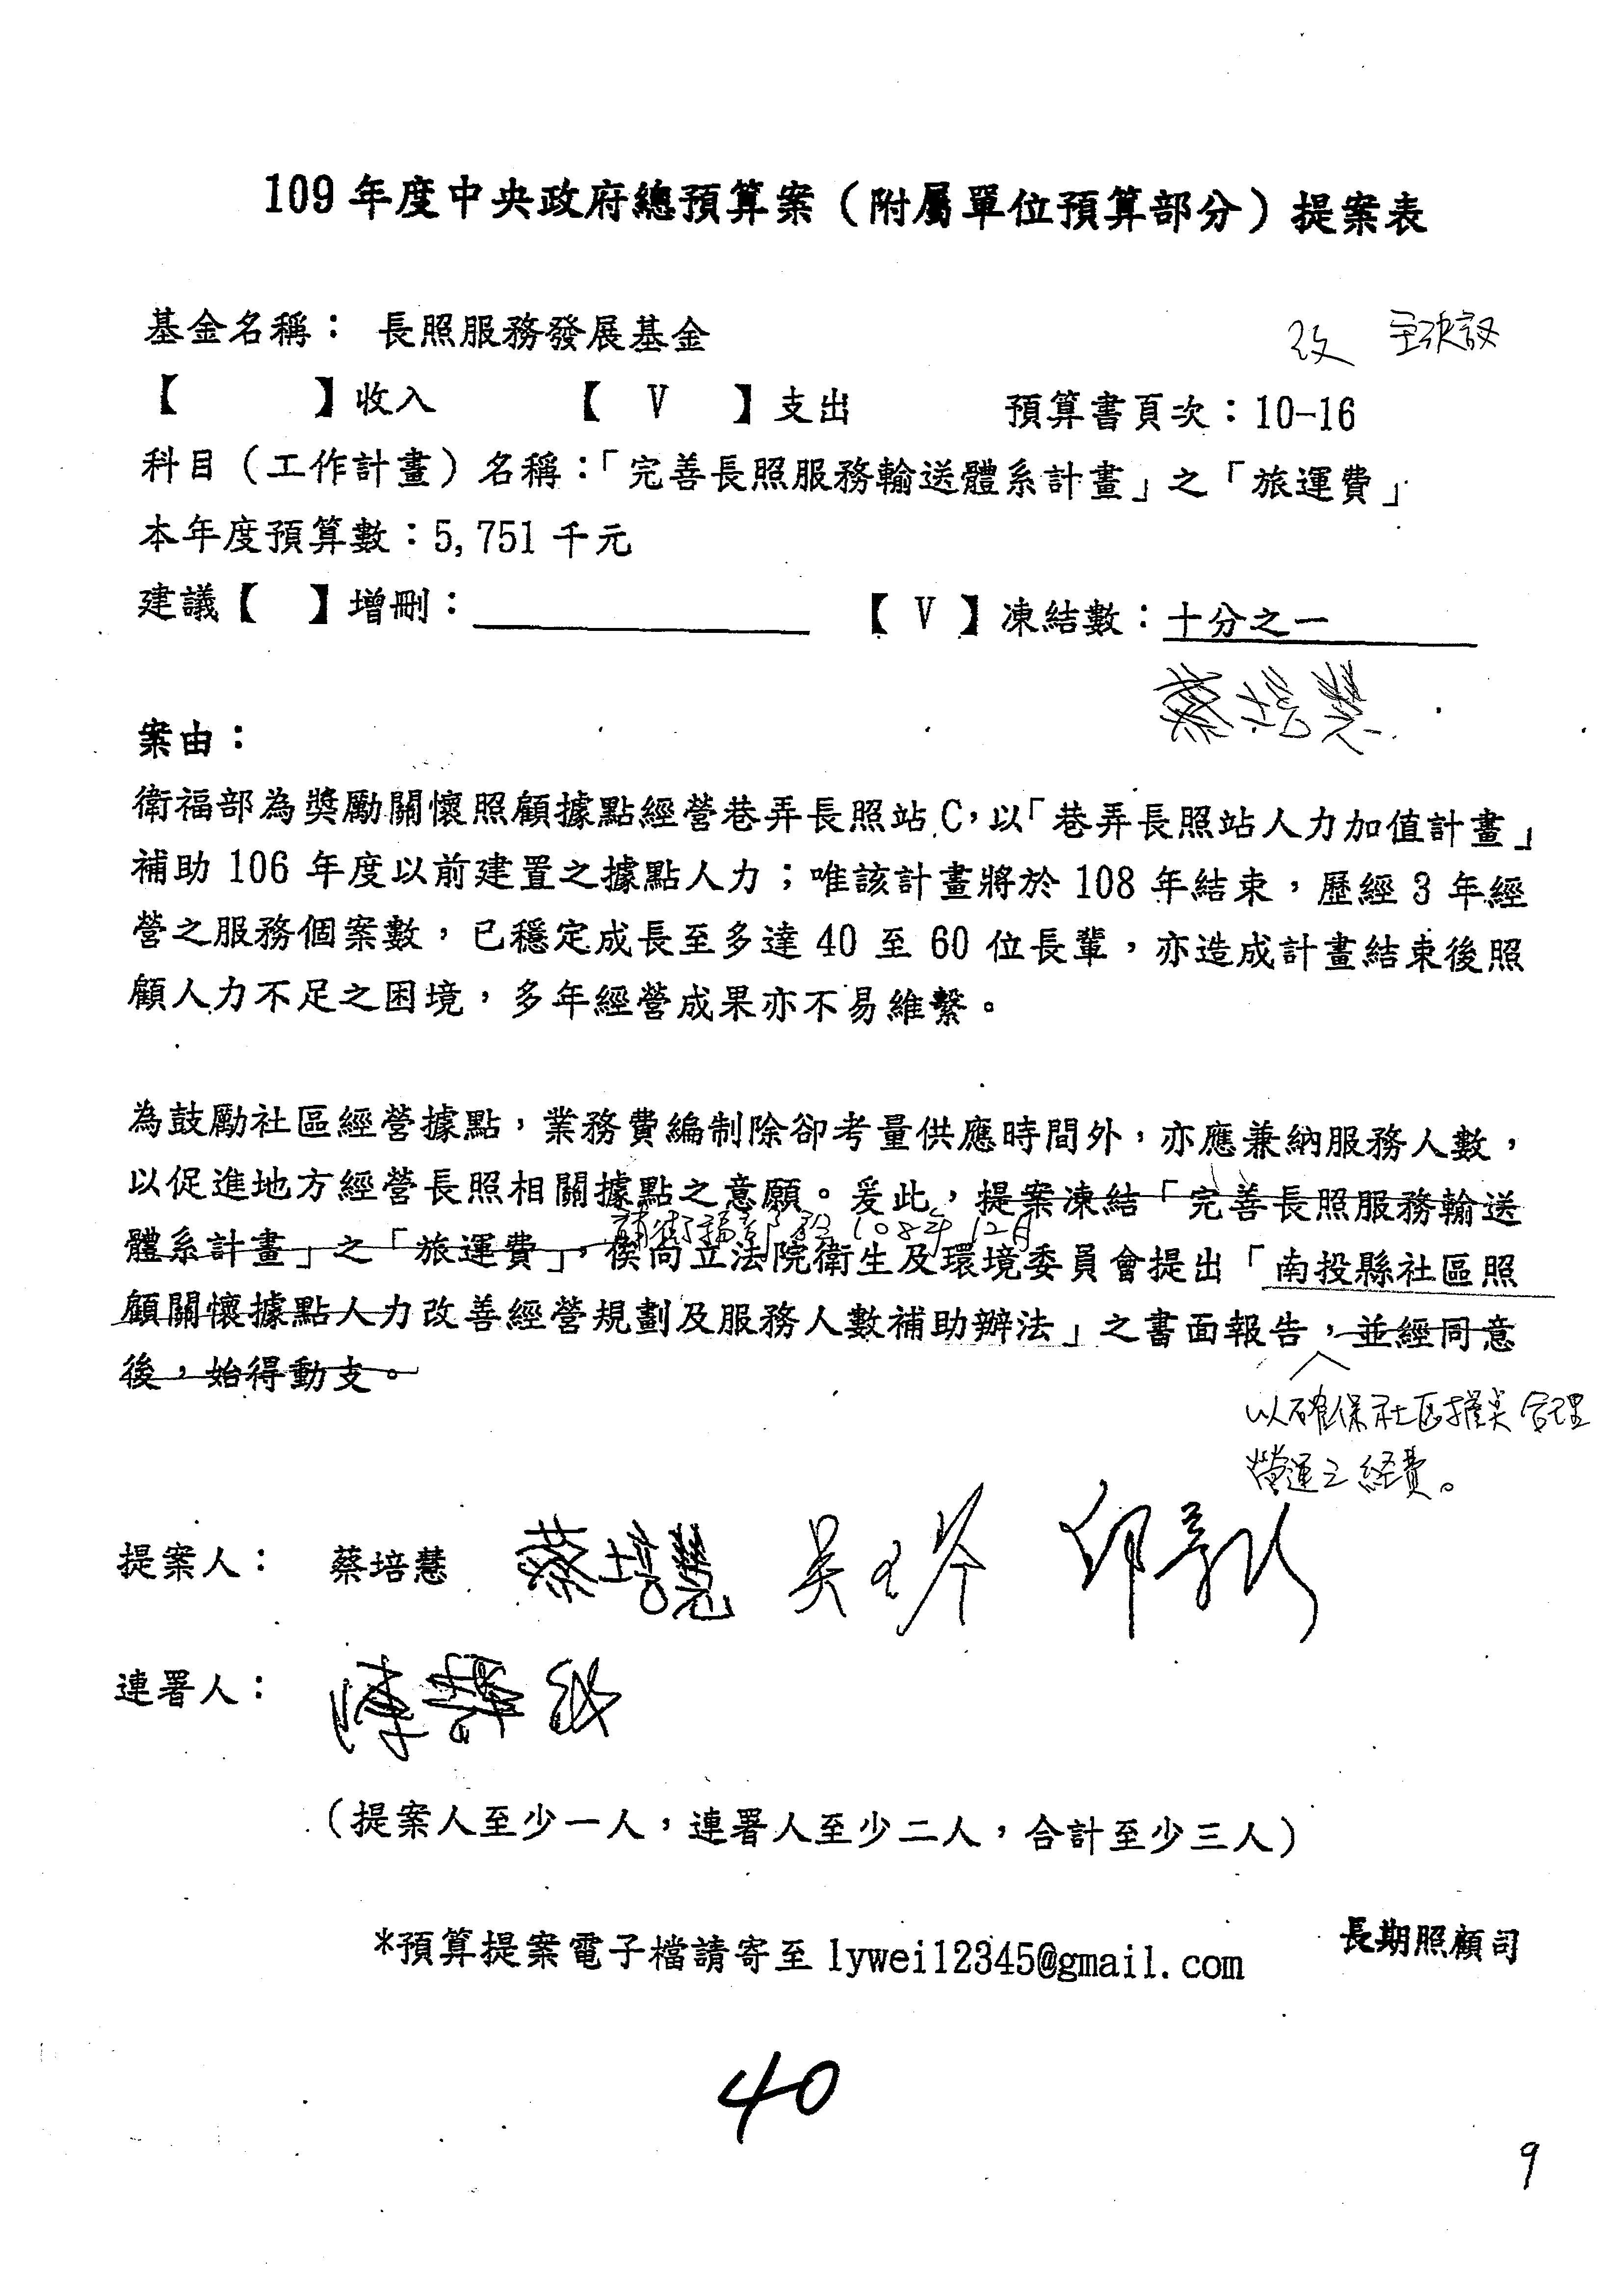 109年度中央政府總預算案（附屬單位預算部分）提案表
基金名稱： 長照服務發展基金
改 主決議
【　　】收入　　【 V 】支出　　預算書頁次：10-16
科目（工作計畫）名稱：「完善長照服務輸送體系計畫」之「旅運費」
本年度預算數：5,751千元
建議【　】增刪：　　【 V 】凍結數：十分之一
蔡培慧
案由：
衛福部為獎勵關懷照顧據點經營巷弄長照站C，以「巷弄長照站人力加值計畫」
補助106年度以前建置之據點人力；唯該計畫將於108年結束，歷經3年經
營之服務個案數，已穩定成長至多達40至60位長輩，亦造成計畫結束後照
顧人力不足之困境，多年經營成果亦不易維繫。
為鼓勵社區經營據點，業務費編制除卻考量供應時間外，亦應兼納服務人數，
以促進地方經營長照相關據點之意願。爰此，提案凍結「完善長照服務輸送
請衛福部於108年12月
體系計畫」之「旅運費」，俟向立法院衛生及環境委員會提出「南投縣社區照
顧關懷據點人力改善經營規劃及服務人數補助辦法」之書面報告，並經同意
後，始得動支。
以確保社區據點合理
營運之經費。
提案人： 蔡培慧 蔡培慧
連署人：
（提案人至少一人，連署人至少二人，合計至少三人）
*預算提案電子檔請寄至lywei12345@gmail.com
長期照顧司
40
9